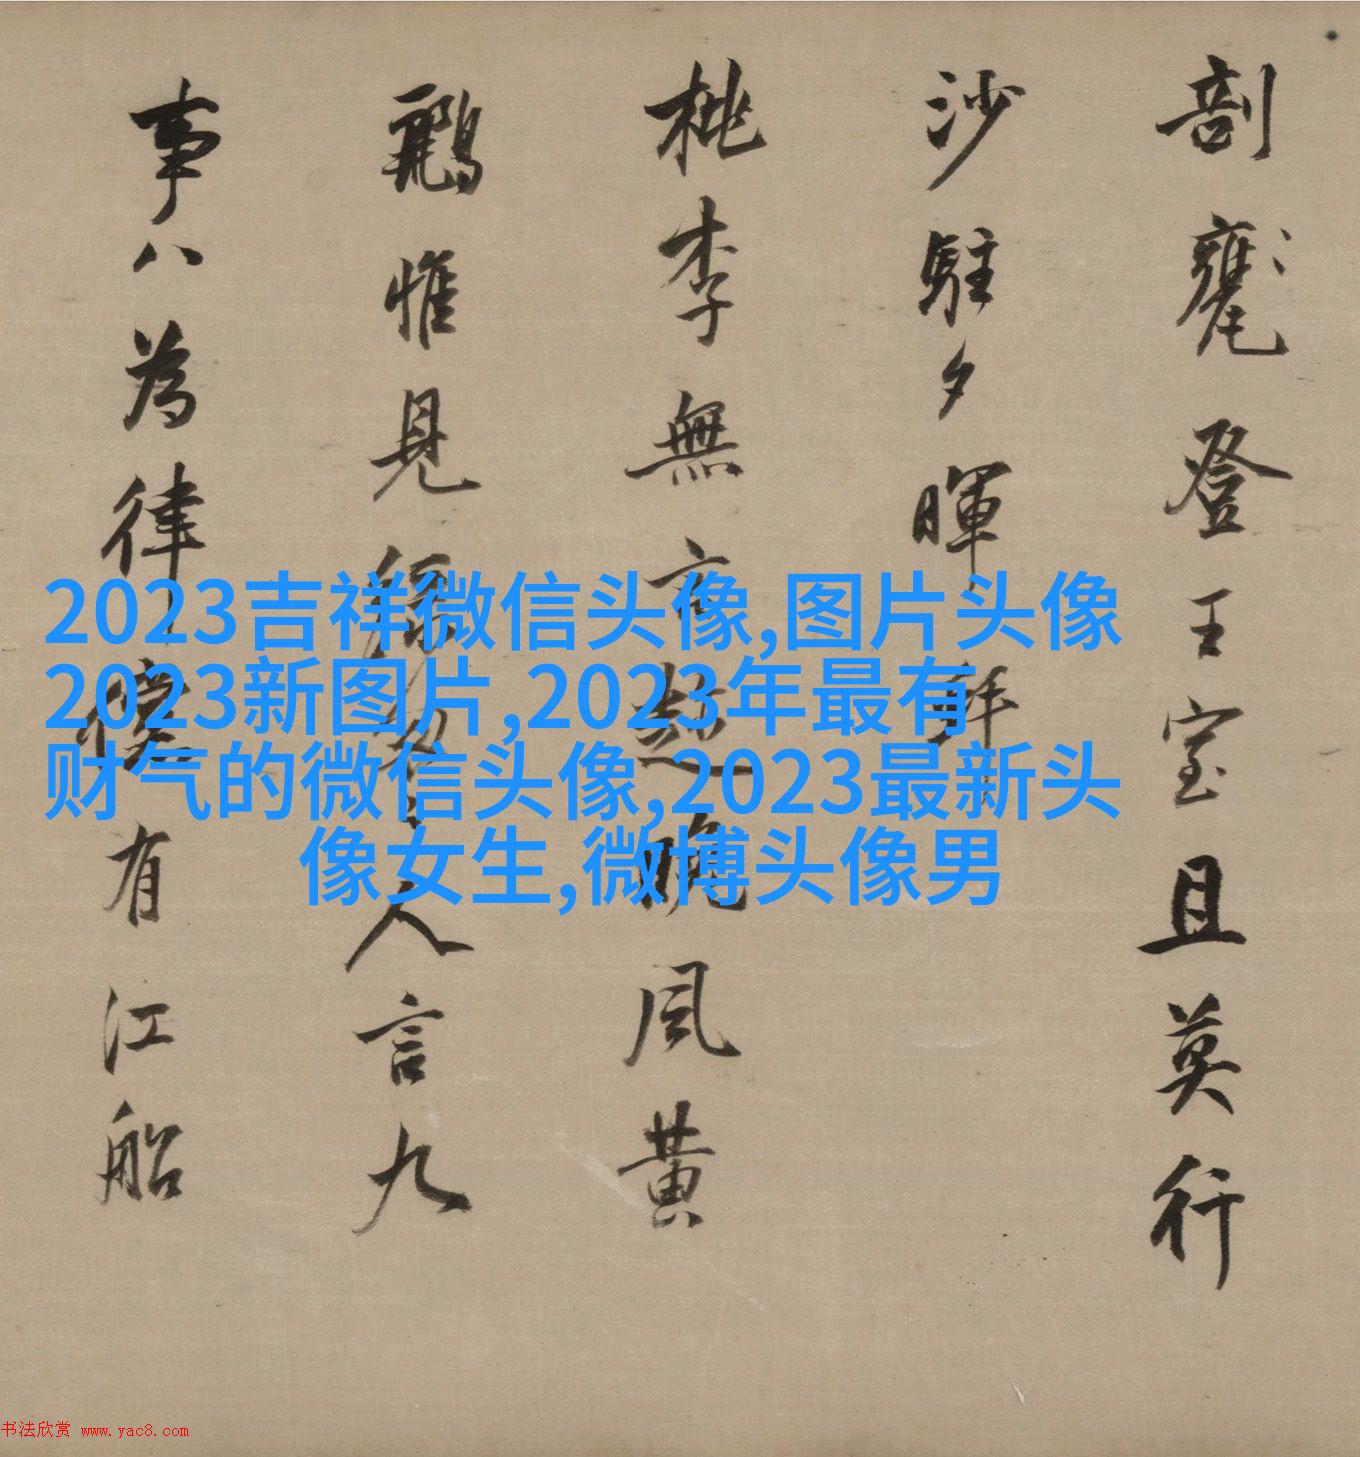 剖甕登王室且莫行
沙駐夕暉
桃李無言晚風黃
鸝惟見人言九
事八為律有江船
2023吉祥微信头像,图片头像
2023新图片,2023年最有
财气的微信头像,2023最新头
像女生,微博头像男
书法欣赏 www.yac8.com